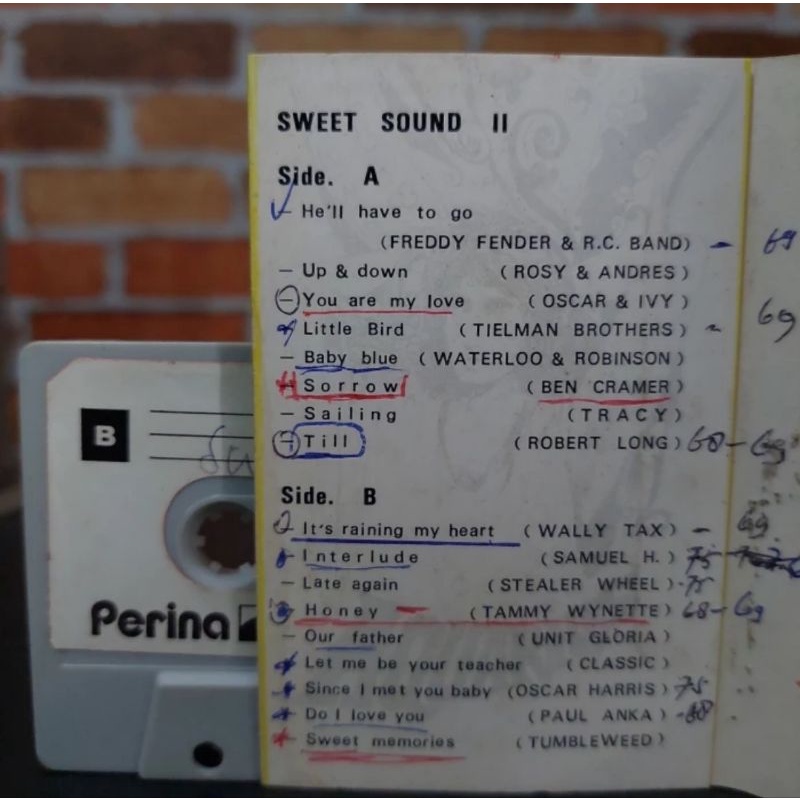 SWEET SOUND II
Side. A
- He'll have to go
(FREDDY FENDER & R.C. BAND) - 69
- Up & down (ROSY & ANDRES)
- You are my love (OSCAR & IVY)
- Little Bird (TIELMAN BROTHERS) - 69
- Baby blue (WATERLOO & ROBINSON)
- Sorrow (BEN CRAMER)
- Sailing (TRACY)
- Till (ROBERT LONG) 68-69
Side. B
- It's raining my heart (WALLY TAX) - 69
- Interlude (SAMUEL H.) 75
- Late again (STEALER WHEEL) -75
- Honey (TAMMY WYNETTE) 68-69
- Our father (UNIT GLORIA)
- Let me be your teacher (CLASSIC)
- Since I met you baby (OSCAR HARRIS) 75
- Do I love you (PAUL ANKA)
- Sweet memories (TUMBLEWEED)
B
Perina